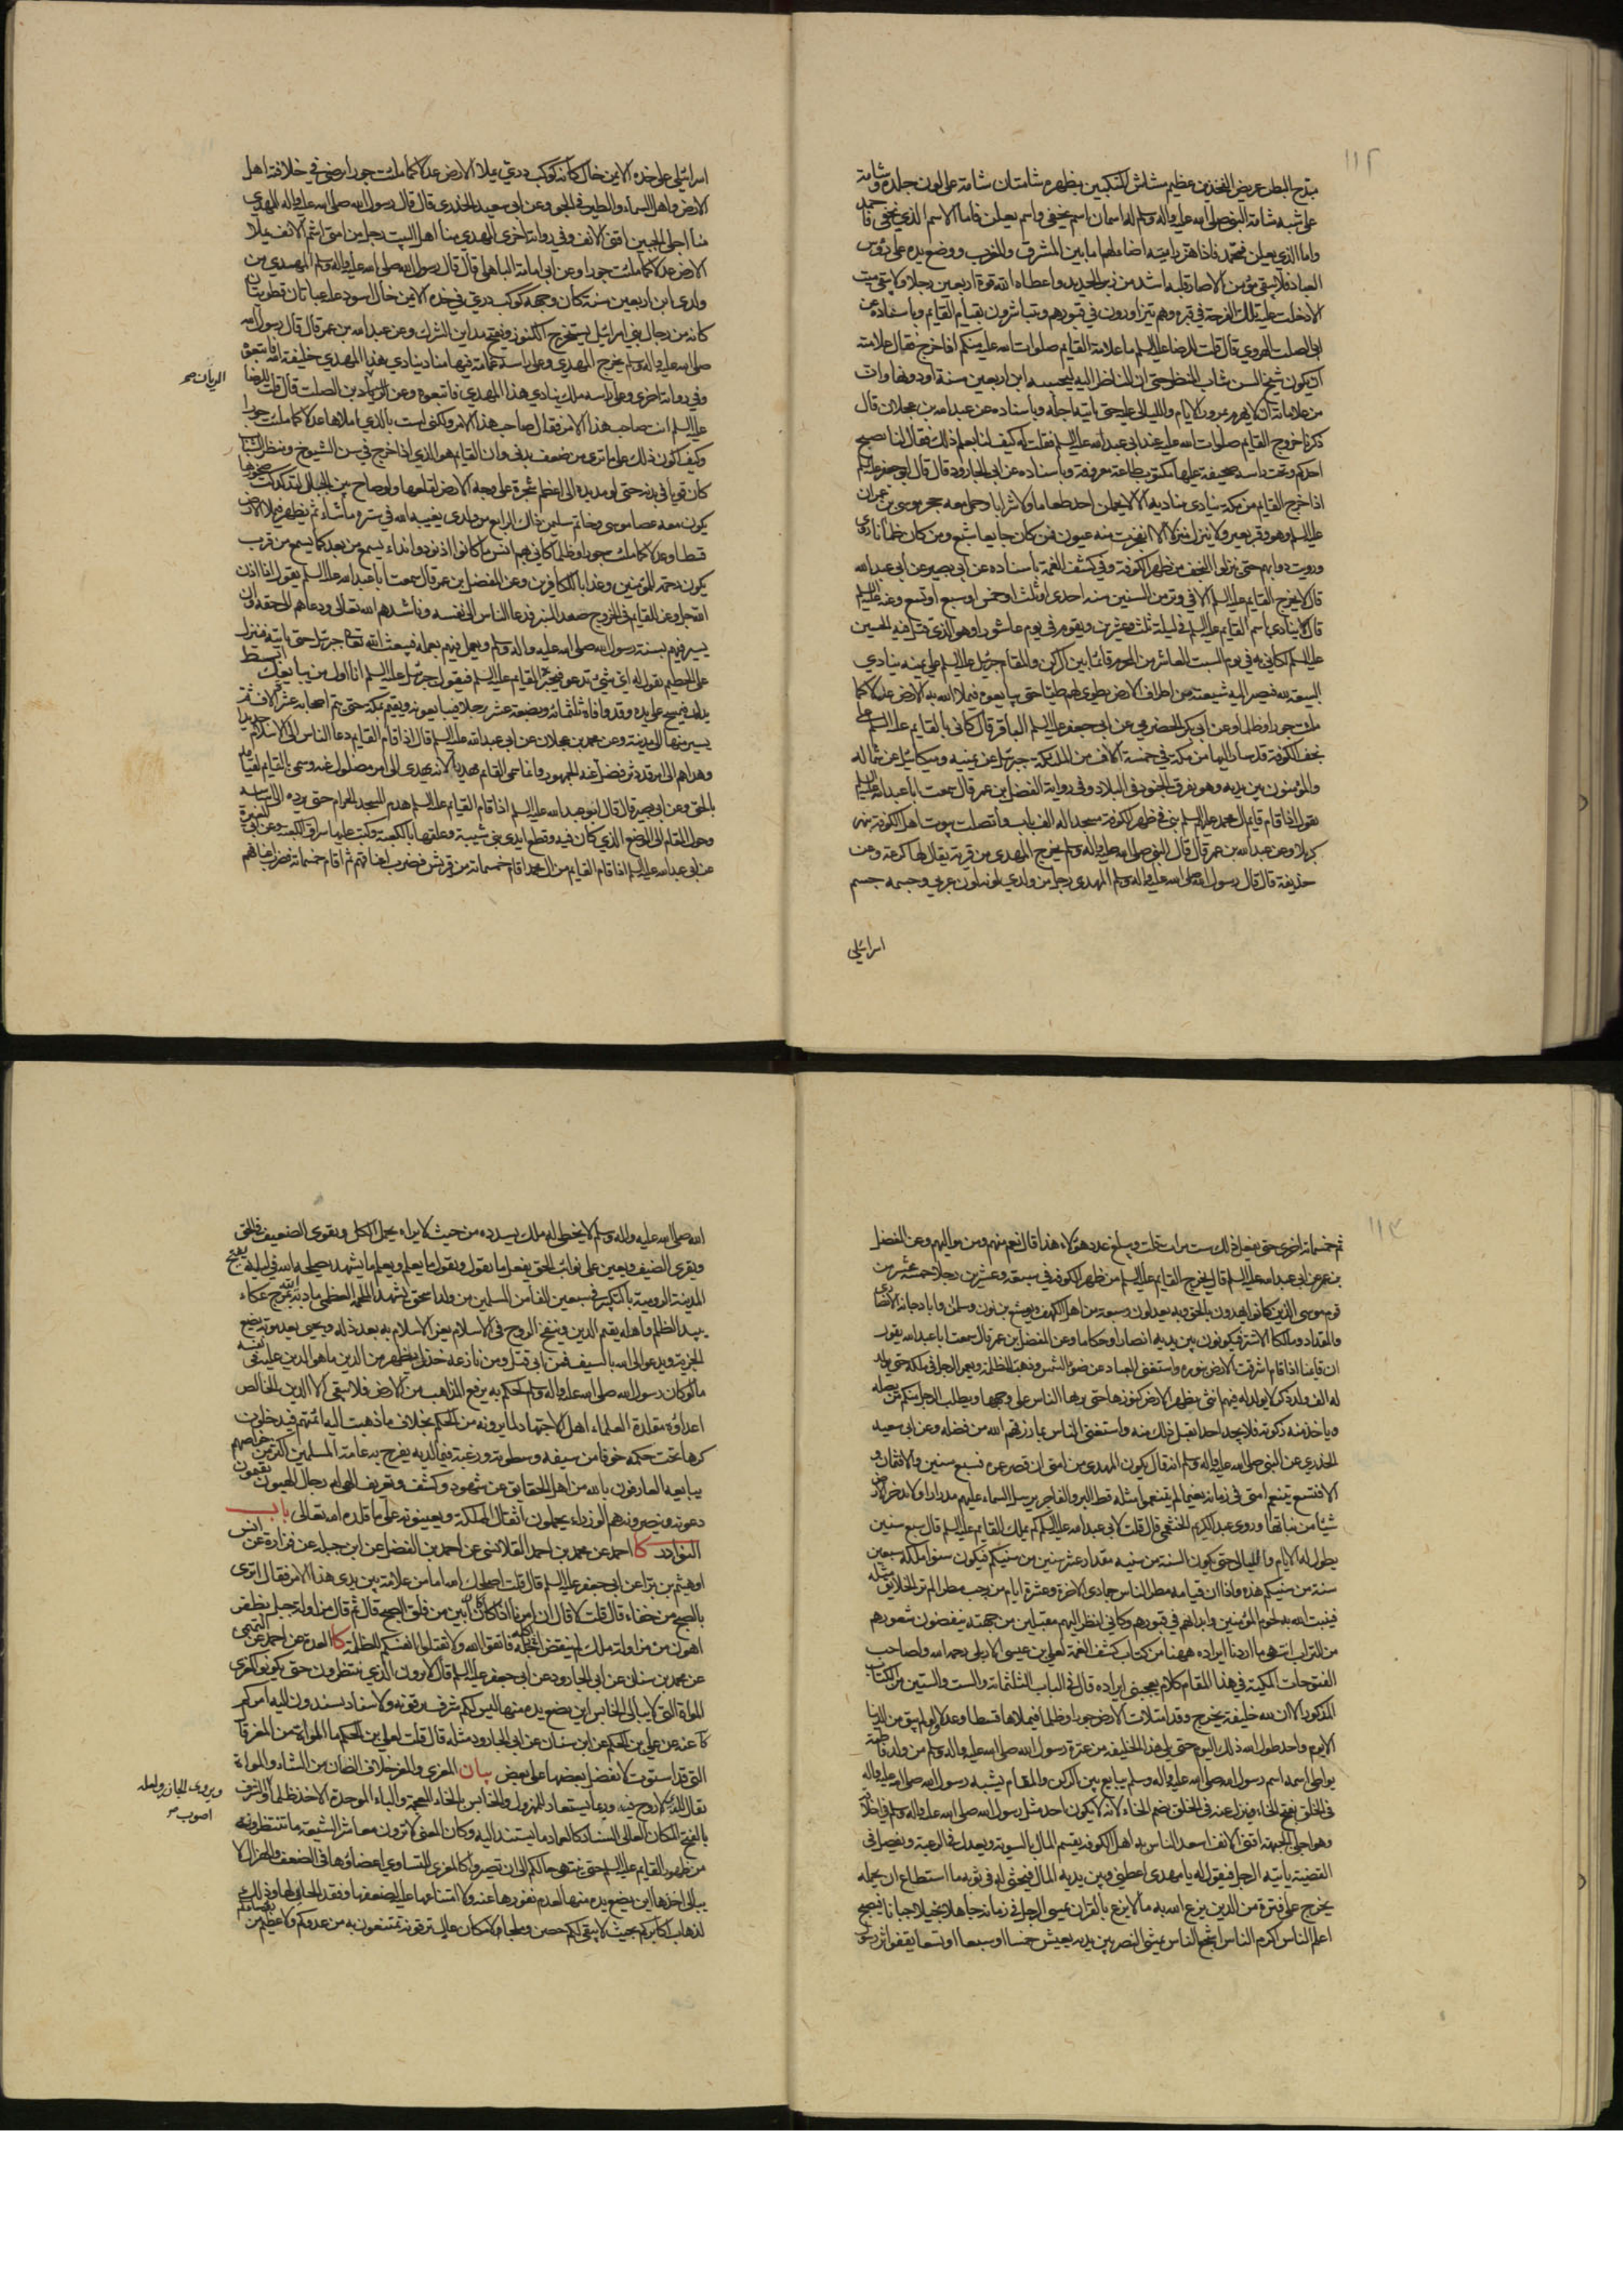 ١١٢
مبدح البطن عريض الفخذين عظيم مشاش المنكبين بظهره شامتان شامة على لون جلده وشامة
على شبه شامة النبي صلى الله عليه واله وسلم له اسمان اسم يخفى واسم يعلن فاما الاسم الذي يخفى فاحمد
واما الذي يعلن فمحمد فاذا هز رايته اضاء لها ما بين المشرق والمغرب ووضع يده على رؤس
العباد فلا يبقى مؤمن الا صار قلبه اشد من زبر الحديد واعطاه الله قوة اربعين رجلا ولا يبقى ميت
الا دخلت عليه تلك الفرحة في قبره وهم يتزاورون في قبورهم ويتباشرون بقيام القايم وباسناده عن
ابي الصلت الهروي قال قلت للرضا عليه السلم ما علامة القايم صلوات الله عليه منكم اذا خرج فقال علامته
ان يكون شيخ السن شاب المنظر حتى ان الناظر اليه ليحسبه ابن اربعين سنة او دونها وان
من علاماته ان لا يهرم بمرور الايام والليالي عليه حتى ياتيه اجله وباسناده عن عبد الله بن عجلان قال
ذكرنا خروج القايم صلوات الله عليه عند ابي عبد الله عليه السلم فقلت له كيف لنا بعلم ذلك فقال لنا يصبح
احدكم وتحت راسه صحيفة عليها مكتوب طاعة معروفة وباسناده عن ابي الجارود قال قال ابو جعفر عليه السلم
اذا خرج القايم من مكة ينادي مناديه الا لا يحملن احد طعاما ولا شرابا وحمل معه حجر موسى بن عمران
عليه السلم وهو وقر بعير ولا ينزل منزلا الا انفجرت منه عيون فمن كان جايعا شبع ومن كان ظمأنا روى
ورويت دوابهم حتى ينزلوا النجف من ظهر الكوفة وفي كشف الغمة باسناده عن ابي بصير عن ابي عبد الله
قال لا يخرج القايم عليه السلم الا في وتر من السنين سنة احدى او ثلث او خمس او سبع او تسع وعنه عليه السلم
قال ينادى باسم القايم عليه السلم في ليلة ثلث وعشرين ويقوم في يوم عاشورا وهو الذي قتل فيه الحسين
عليه السلم لكاني به في يوم السبت العاشر من المحرم قائما بين الركن والمقام جبرئيل عليه السلم على يمينه ينادي
البيعة لله فيصير اليه شيعته من اطراف الارض تطوى لهم طيا حتى يبايعوه فيملأ الله به الارض عدلا كما
ملئت جورا وظلما وعن ابي بكر الحضرمي عن ابي جعفر عليه السلم الباقر قال كاني بالقايم عليه السلم على
نجف الكوفة قد سار اليها من مكة في خمسة آلاف من الملئكة جبرئيل عن يمينه وميكائيل عن شماله
والمؤمنون بين يديه وهو يفرق الجنود في البلاد وفي رواية المفضل بن عمر قال سمعت ابا عبد الله عليه السلم
يقول اذا قام قايم ال محمد عليه السلم بنى في ظهر الكوفة مسجدا له الف باب واتصلت بيوت اهل الكوفة بنهر
كربلا وعن عبد الله بن عمر قال قال النبي صلى الله عليه واله وسلم يخرج المهدي من قرية يقال لها كرعة وعن
حذيفة قال قال رسول الله صلى الله عليه واله وسلم المهدي رجل من ولدي لونه لون عربي وجسمه جسم
اسرائيلي
اسرائيلي على خده الايمن خال كانه كوكب دري يملأ الارض عدلا كما ملئت جورا يرضى في خلافته اهل
الارض واهل السماء والطير في الجو وعن ابي سعيد الخدري قال قال رسول الله صلى الله عليه واله المهدي
منا اجلى الجبين اقنى الانف وفي رواية اخرى المهدي منا اهل البيت رجل من امتي اشم الانف يملأ
الارض عدلا كما ملئت جورا وعن ابي امامة الباهلي قال قال رسول الله صلى الله عليه واله وسلم المهدي من
ولدي ابن اربعين سنة كان وجهه كوكب دري في خده الايمن خال اسود عليه عباءتان قطويتان
كانه من رجال بني اسرائيل يستخرج الكنوز ويفتح مداين الشرك وعن عبد الله بن عمر قال قال رسول الله
صلى الله عليه واله وسلم يخرج المهدي وعلى راسه غمامة فيها مناد ينادي هذا المهدي خليفة الله فاتبعوه
وفي رواية اخرى وعلى راسه ملك ينادي هذا المهدي فاتبعوه وعن الريان بن الصلت قال قلت للرضا
الريان صح
عليه السلم انت صاحب هذا الامر فقال صاحب هذا الامر ولكني لست بالذي املاها عدلا كما ملئت جورا
وكيف اكون ذلك على ما ترى من ضعف بدني وان القايم هو الذي اذا خرج في سن الشيوخ ومنظر الشباب
كان قويا في بدنه حتى لو مد يده الى اعظم شجرة على وجه الارض لقلعها ولو صاح بين الجبال لتدكدكت صخورها
يكون معه عصا موسى وخاتم سليمن ذاك الرابع من ولدي يغيبه الله في ستره ما شاء ثم يظهره فيملأ الارض
قسطا وعدلا كما ملئت جورا وظلما كاني بهم انس ما كانوا اذ نودوا نداء يسمع من بعد كما يسمع من قرب
يكون رحمة للمؤمنين وعذابا للكافرين وعن المفضل بن عمر قال سمعت ابا عبد الله عليه السلم يقول اذا اذن
الله جل وعز للقايم في الخروج صعد المنبر فدعا الناس الى نفسه وناشدهم الله تعالى ودعاهم الى حقه وان
يسير فيهم بسنة رسول الله صلى الله عليه واله وسلم ويعمل فيهم بعمله فيبعث الله تعالى جبرئيل حتى ياتيه فينزل
على الحطيم يقول له اي شيء تدعو فيخبره القايم عليه السلم فيقول جبرئيل عليه السلم انا اول من يبايعك ابسط
يدك فيمسح على يده وقد وافاه ثلثمائة وبضعة عشر رجلا فيبايعونه ويقيم بمكة حتى يتم اصحابه عشرة الاف ثم
يسير منها الى المدينة وعن محمد بن عجلان عن ابي عبد الله عليه السلم قال اذا قام القايم دعا الناس الى الاسلام جديدا
وهداهم الى امر قد دثر فضل عنه الجمهور وانما سمي القايم مهديا لانه يهدي الى امر مضلول عنه وسمي بالقايم لقيامه
بالحق وعن ابي بصير قال قال ابو عبد الله عليه السلم اذا قام القايم عليه السلم هدم المسجد الحرام حتى يرده الى اساسه
وحول المقام الى الموضع الذي كان فيه وقطع ايدي بني شيبة وعلقها بالكعبة وكتب عليها سراق الكعبة وعن ابي
عن ابي عبد الله عليه السلم اذا قام القايم من ال محمد اقام خمسمائة من قريش فضرب اعناقهم ثم اقام خمسمائة فضرب اعناقهم
١١٣
ثم خمسمائة اخرى حتى يفعل ذلك ست مرات قلت ويبلغ عدد هؤلاء هذا قال نعم منهم ومن مواليهم وعن المفضل
بن عمر عن ابي عبد الله عليه السلم قال يخرج القايم عليه السلم من ظهر الكوفة في سبعة وعشرين رجلا خمسة عشر من
قوم موسى الذين كانوا يهدون بالحق وبه يعدلون وسبعة من اهل الكهف ويوشع بن نون وسلمان وابا دجانة الانصاري
والمقداد ومالكا الاشتر فيكونون بين يديه انصارا وحكاما وعن المفضل بن عمر قال سمعت ابا عبد الله يقول
ان قايمنا اذا قام اشرقت الارض بنوره واستغنى العباد عن ضوء الشمس وذهبت الظلمة ويعمر الرجل في ملكه حتى يولد
له الف ولد ذكر لا يولد له فيهم انثى وتظهر الارض كنوزها حتى يراها الناس على وجهها ويطلب الرجل منكم من يصله
وياخذ منه زكوته فلا يجد احدا يقبل ذلك منه واستغنى الناس بما رزقهم الله من فضله وعن ابي سعيد
الخدري عن النبي صلى الله عليه واله وسلم انه قال يكون المهدي من امتي ان قصر عمره فسبع سنين والا فثمان و
الا فتسع يتنعم امتي في زمانه نعيما لم يتنعموا مثله قط البر والفاجر يرسل السماء عليهم مدرارا ولا تدخر الارض
شيئا من نباتها وروى عبد الكريم الخثعمي قال قلت لابي عبد الله عليه السلم كم يملك القايم عليه السلم قال سبع سنين
يطول له الايام والليالي حتى يكون السنة من سنيه مقدار عشر سنين من سنيكم فيكون سنوا ملكه سبعين
سنة من سنيكم هذه واذا ان قيامه مطر الناس جمادى الاخرة وعشرة ايام من رجب مطرا لم تر الخلايق مثله
فينبت الله به لحوم المؤمنين وابدانهم في قبورهم وكاني انظر اليهم مقبلين من جهينة ينفضون شعورهم
من التراب انتهى ما اردنا ايراده ههنا من كتاب كشف الغمة لعلي بن عيسى الاربلي رحمه الله ولصاحب
الفتوحات المكية في هذا المقام كلام يعجبني ايراده قال في الباب الثلثمائة والست والستين من الكتاب
المذكور الا ان لله خليفة يخرج وقد امتلات الارض جورا وظلما فيملاها قسطا وعدلا لو لم يبق من الدنيا
الا يوم واحد طول الله ذلك اليوم حتى يلي هذا الخليفة من عترة رسول الله صلى الله عليه واله وسلم من ولد فاطمة
يواطي اسمه اسم رسول الله صلى الله عليه واله وسلم يبايع بين الركن والمقام يشبه رسول الله صلى الله عليه واله
في الخلق بفتح الخاء وينزل عنه في الخلق بضم الخاء لانه لا يكون احد مثل رسول الله صلى الله عليه واله وسلم في اخلاقه
وهو اجلى الجبهة اقنى الانف اسعد الناس به اهل الكوفة يقسم المال بالسوية ويعدل في الرعية ويفصل في
القضية ياتيه الرجل فيقول له يا مهدي اعطني وبين يديه المال فيحثي له في ثوبه ما استطاع ان يحمله
يخرج على فترة من الدين يزع الله به ما لا يزع بالقران يمسي الرجل في زمانه جاهلا بخيلا جبانا فيصبح
اعلم الناس اكرم الناس اشجع الناس يمشي النصر بين يديه يعيش خمسا او سبعا او تسعا يقفو اثر رسول
الله صلى الله عليه واله وسلم لا يخطي له ملك يسدده من حيث لا يراه يحمل الكل ويقوى الضعيف في الحق
ويقري الضيف ويعين على نوائب الحق يفعل ما يقول ويقول ما يعلم ويعلم ما يشهد يصلحه الله في ليلة يفتح
المدينة الرومية بالتكبير في سبعين الفا من المسلمين من ولد اسحق يشهد الملحمة العظمى مادبة الله بمرج عكاء
يبيد الظلم واهله يقيم الدين وينفخ الروح في الاسلام يعز الاسلام به بعد ذله ويحيى بعد موته يضع
الجزية ويدعو الى الله بالسيف فمن ابى قتل ومن نازعه خذل يظهر من الدين ما هو الدين عليه في نفسه
ما لو كان رسول الله صلى الله عليه واله وسلم لحكم به يرفع المذاهب من الارض فلا يبقى الا الدين الخالص
اعداؤه مقلدة العلماء اهل الاجتهاد لما يرونه من الحكم بخلاف ما ذهبت اليه ائمتهم فيدخلون
كرها تحت حكمه خوفا من سيفه وسطوته ورغبة فيما لديه يفرح به عامة المسلمين اكثر من خواصهم
يبايعه العارفون بالله من اهل الحقايق عن شهود وكشف وتعريف الهي له رجال الهيون يقيمون
دعوته وينصرونه هم الوزراء يحملون اثقال المملكة ويعينونه على ما قلده الله تعالى باب
النوادر كا احمد عن محمد بن احمد القلانسي عن احمد بن الفضل عن ابن جبلة عن فزارة عن انس
او هيثم بن برا عن ابي جعفر عليه السلم قال قلت اصلحك الله اما من علامة بين يدي هذا الامر فقال اترى
بالصبح من خفاء قال قلت لا قال ان امرنا اذا كان كان ابين من فلق الصبح قال ثم قال مزاولة جبل بظفر
اهون من مزاولة ملك لم ينقض اكله فاتقوا الله ولا تقتلوا انفسكم للظلمة كا العدة عن احمد عن
عن محمد بن سنان عن ابي الجارود عن ابي جعفر عليه السلم قال لا ترون الذي تنتظرون حتى تكونوا كالمعزى
المواة التي لا يبالي الخابس اين يضع يده منها ليس لكم شرف ترقونه ولا سناد تسندون اليه امركم
كا عنه عن علي بن الحكم عن ابن سنان عن ابي الجارود مثله قال قلت لعلي بن الحكم ما المواة من المعز قال
التي قد استوت لا يفضل بعضها على بعض بيان المعزى والمعز خلاف الضان من الشاء والمواة
يقال للذي لا روح فيه وربما يستعار للمهزول والخابس بالخاء المعجمة والباء الموحدة الاخذ ظلما والشرف
ويروى الجازر ولعله
اصوب صح
بالفتح المكان العالي السناد كالعماد ما يستند اليه وكان المعنى لا ترون معاشر الشيعة ما تنتظرونه
من ظهور القايم عليه السلم حتى ينتهي حالكم الى ان تصيروا كالمعزى التساوي اعضاؤها في الضعف والهزال لا
يبالي اخذها اين يضع يده منها لعدم نفورها عنه ولا امتناعها عليه لضعفها وفقد الحامي لها وذلك
لذهاب اكابركم بحيث لا يبقى لكم حصن وملجأ ولا مكان عال ترقونه تمتنعون به من عدوكم ولا عظيم من